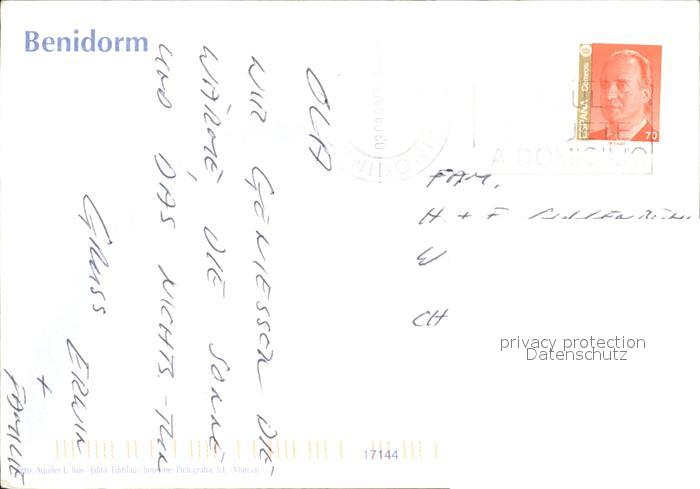 Benidorm
ESPAÑA Correos
70
BENIDORM
A DOMICILIO
OLA
WIR GENIESSEN DIE
WÄRME DIE SONNE
UND DAS NICHTS-TUN
GRUSS ERWIN
+
FAMILIE
FAM.
H + F
W
CH
privacy protection
Datenschutz
17144
Foto: Aquiles L. Ros / Edita: Ediblau / Imprime: Pictografía, S.L. (Murcia)